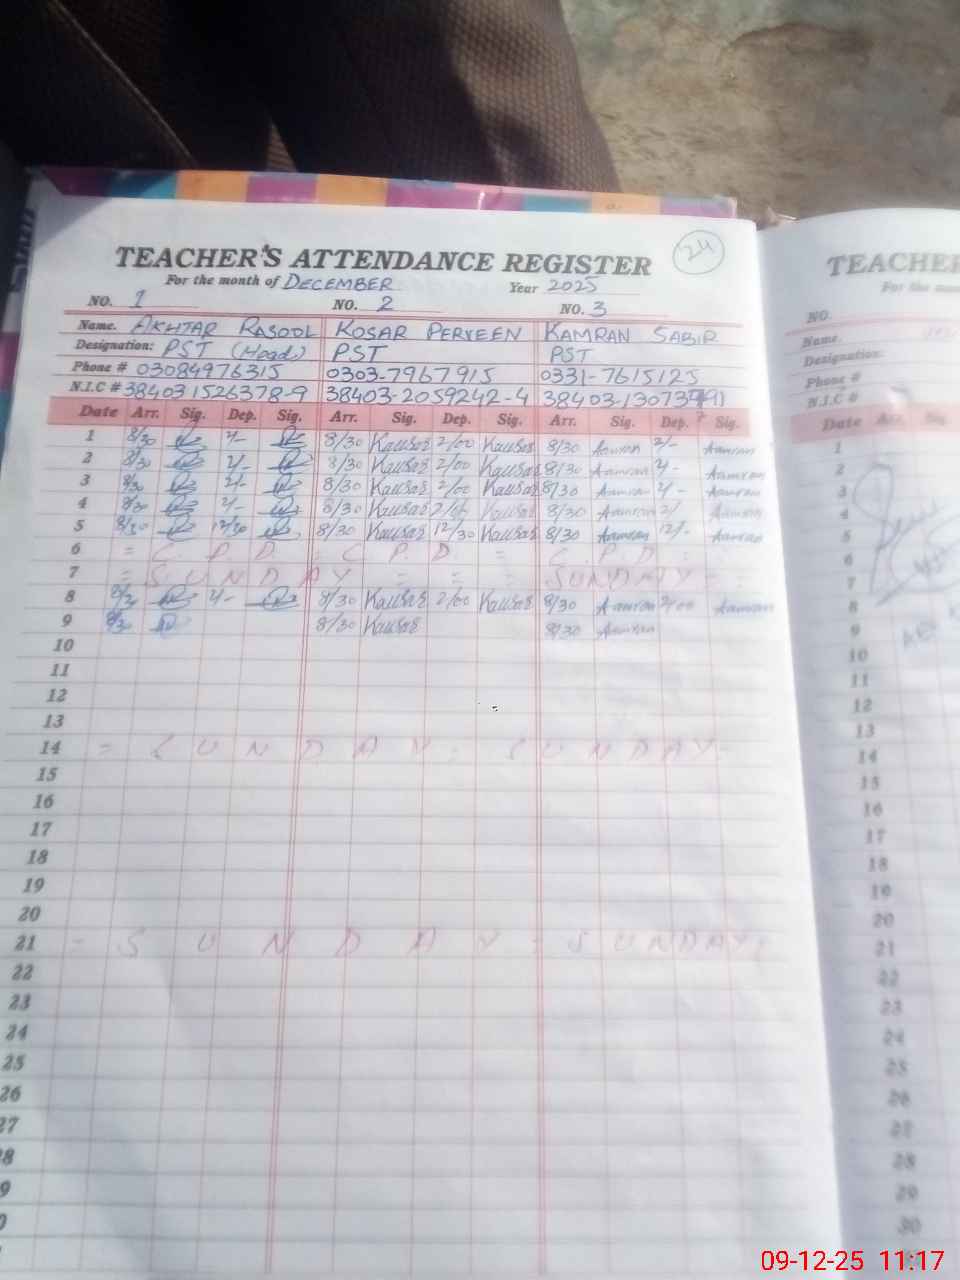 24
TEACHER'S ATTENDANCE REGISTER
For the month of DECEMBER Year 2025
NO. 1 NO. 2 NO. 3
Name. AKHTAR RASOOL KOSAR PERVEEN KAMRAN SABIR
Designation: PST (Head) PST PST
Phone # 03084976315 0303-7967915 0331-7615125
N.I.C # 384031526378-9 38403-2059242-4 38403-1307399
Date Arr. Sig. Dep. Sig. Arr. Sig. Dep. Sig. Arr. Sig. Dep. Sig.
1 8/30 2/- 8/30 Kausar 2/00 Kausar 8/30 Aamran 2/- Aamran
2 8/30 2/- 8/30 Kausar 2/00 Kausar 8/30 Aamran 2/- Aamran
3 8/30 2/- 8/30 Kausar 2/00 Kausar 8/30 Aamran 2/- Aamran
4 8/30 2/- 8/30 Kausar 2/00 Kausar 8/30 Aamran 2/ Aamran
5 8/30 12/30 8/30 Kausar 12/30 Kausar 8/30 Aamran 12/- Aamran
6 = C. P. D. = C P. D. = C. P. D =
7 = SUNDAY = = = SUNDAY =
8 8/30 2/- 8/30 Kausar 2/00 Kausar 8/30 Aamran 2/00 Aamran
9 8/30 8/30 Kausar 8/30 Aamran
10
11
12
13
14 = SUNDAY = SUNDAY =
15
16
17
18
19
20
21 = SUNDAY = SUNDAY =
22
23
24
25
26
27
8
9
0
TEACHER
For the
NO.
Name.
Designation:
Phone #
N.I.C #
Date Arr. Sig
1
2
3
4
5
6
7
8
9
10
11
12
13
14
15
16
17
18
19
20
21
22
23
24
25
26
27
28
29
30
09-12-25 11:17